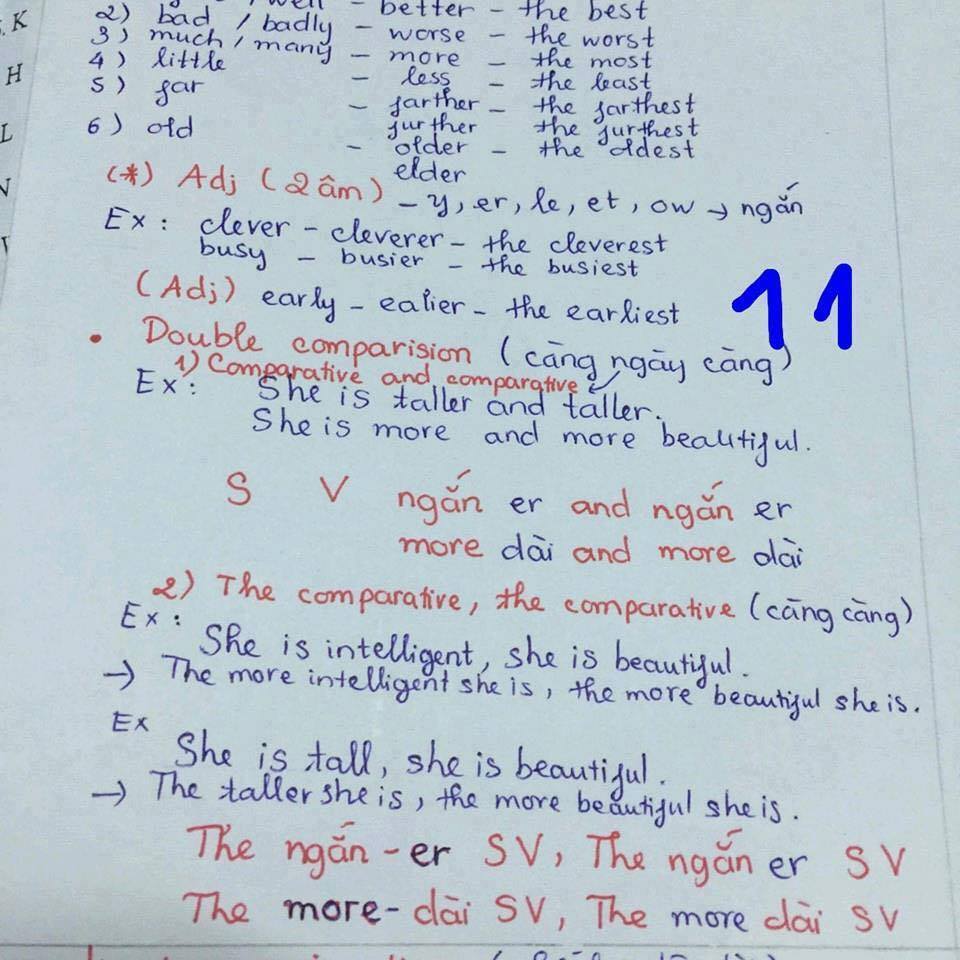 K
H
L
/ well - better - the best
2) bad / badly - worse - the worst
3) much / many - more - the most
4) little - less - the least
5) far - farther - the farthest
further the furthest
6) old - older - the oldest
elder
(*) Adj (2 âm) - y, er, le, et, ow → ngắn
Ex : clever - cleverer - the cleverest
busy - busier - the busiest
(Adj) early - ealier - the earliest
11
• Double comparision (càng ngày càng)
1) Comparative and comparative
Ex : She is taller and taller.
She is more and more beautiful.
S V ngắn er and ngắn er
more dài and more dài
2) The comparative, the comparative (càng càng)
Ex : She is intelligent, she is beautiful.
→ The more intelligent she is, the more beautiful she is.
Ex
She is tall, she is beautiful.
→ The taller she is, the more beautiful she is.
The ngắn - er S V, The ngắn er S V
The more - dài S V, The more dài S V